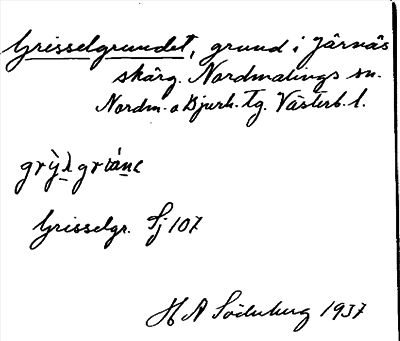 Grisselgrundet, grund i Järnäs
skärg. Nordmalings sn.
Nordm. o Bjurh. Tg. Västerb. l.
Grisselgr. Sj 107
H A Söderberg 1937